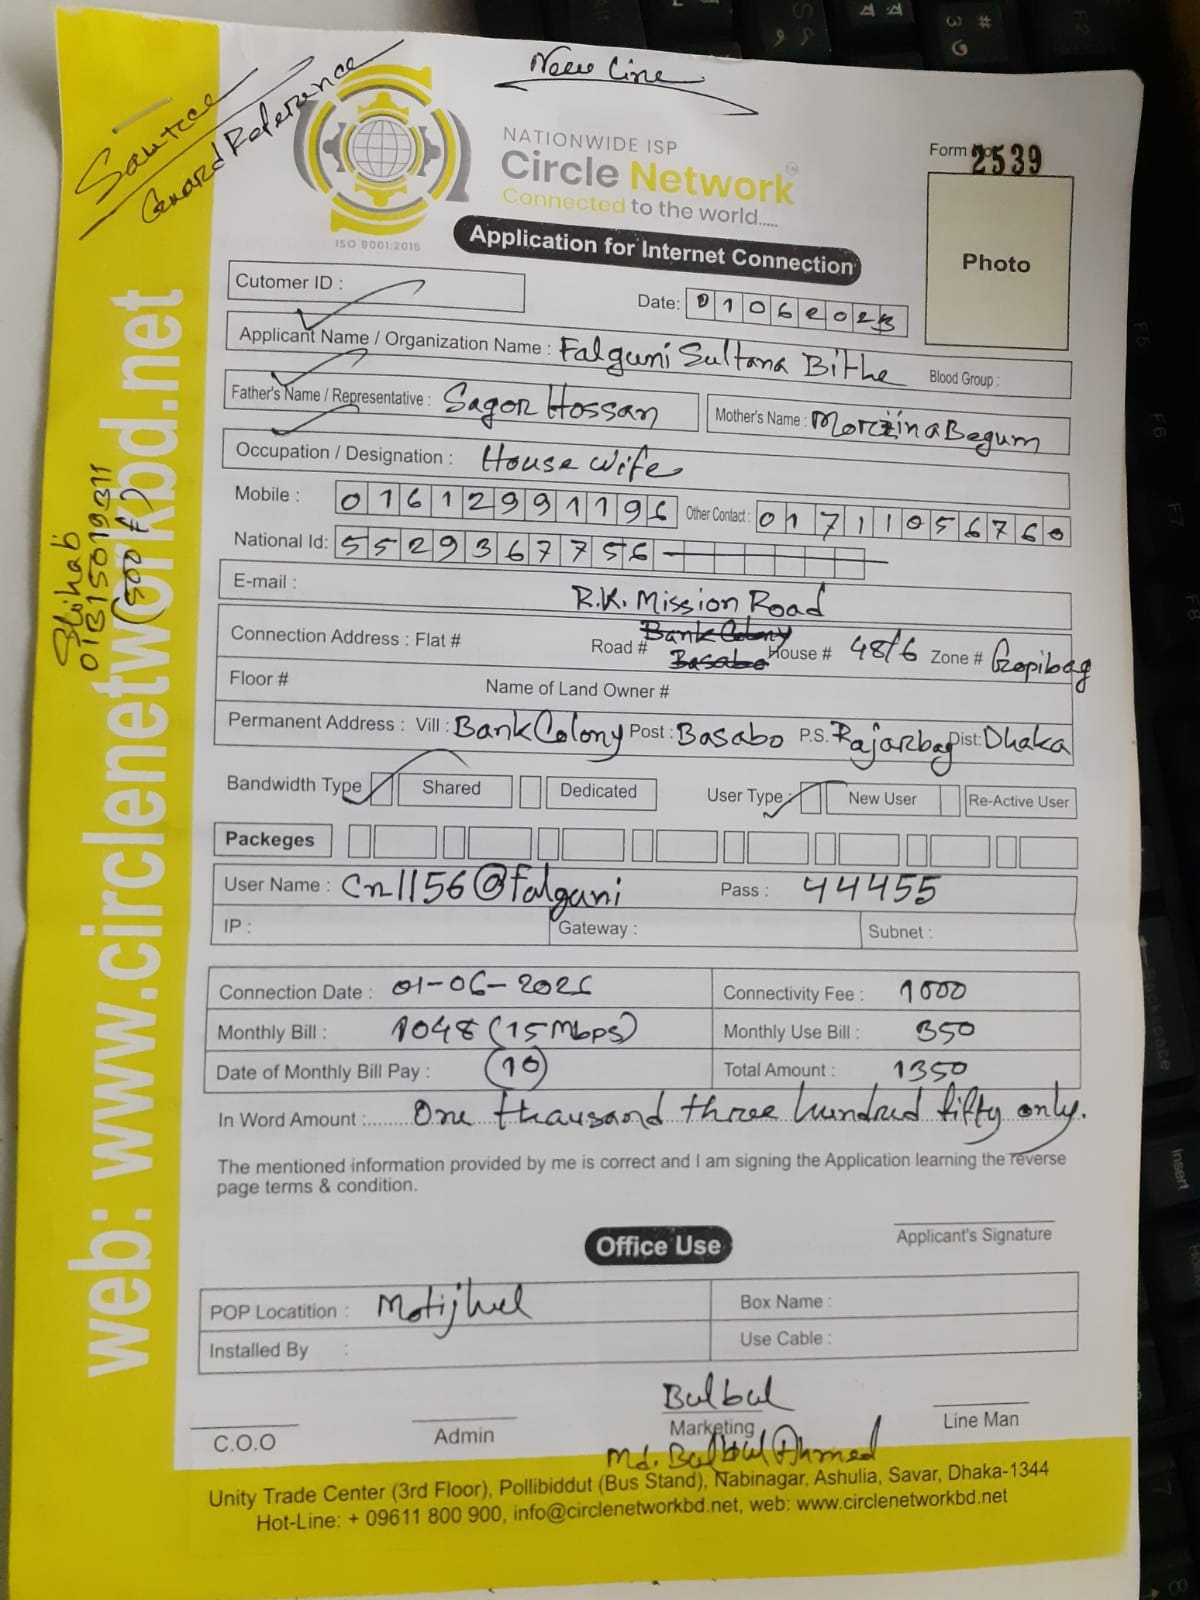 New Line
Santree
Guard Reference
NATIONWIDE ISP
Circle Network
Connected to the world.....
ISO 9001:2015
Form No 2539
Photo
Application for Internet Connection
Cutomer ID :
Date: 01062025
Applicant Name / Organization Name : Falguni Sultana Bithe Blood Group :
Father's Name / Representative : Sagor Hossan Mother's Name : Morzina Begum
Occupation / Designation : House wife
Mobile : 01612991196 Other Contact : 01711056760
National Id: 5529367756
E-mail :
R.K. Mission Road
Connection Address : Flat # Road # Bank Colony Basabo House # 48/6 Zone # Gopibag
Floor # Name of Land Owner #
Permanent Address : Vill : Bank Colony Post : Basabo P.S. Rajarbag Dist: Dhaka
Bandwidth Type Shared Dedicated User Type : New User Re-Active User
Packeges
User Name : Cn1156@falguni Pass : 44455
IP : Gateway : Subnet :
Connection Date : 01-06-2025 Connectivity Fee : 1000
Monthly Bill : 1048 (15 Mbps) Monthly Use Bill : 350
Date of Monthly Bill Pay : 10 Total Amount : 1350
In Word Amount :......... One thausand three hundred fifty only.
The mentioned information provided by me is correct and I am signing the Application learning the reverse
page terms & condition.
Applicant's Signature
Office Use
POP Locatition : Motijhel Box Name :
Installed By : Use Cable :
Bulbul
C.O.O Admin Marketing Line Man
Md. Bulbul Ahmed
Unity Trade Center (3rd Floor), Pollibiddut (Bus Stand), Nabinagar, Ashulia, Savar, Dhaka-1344
Hot-Line: + 09611 800 900, info@circlenetworkbd.net, web: www.circlenetworkbd.net
web: www.circlenetworkbd.net
Shihab
(500 ৳)